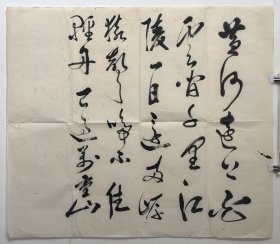 黄河遠上白
雲间千里江
陵一日還兩岸
猿聲啼不住
輕舟已過萬重山